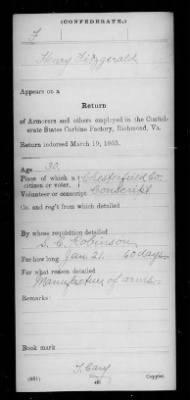 (CONFEDERATE.)
F
Henry Fitzgerald
Appears on a
Return
of Armorers and others employed in the Confed-
erate States Carbine Factory, Richmond, Va.
Return indorsed March 19, 1863.
Age 30
Place of which a citizen or voter, Chesterfield Co.
Volunteer or conscript Conscript
Co. and reg't from which detailed
By whose requisition detailed
S. C. Robinson
For how long Jan 21. 60 days
For what reason detailed
Manufacture of arms.
Remarks:
Book mark
T. Cary
Copyist.